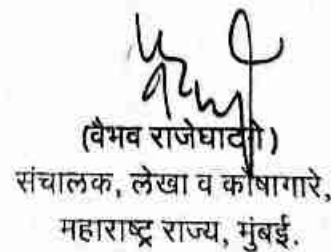 (वैभव राजेघाटगे)
संचालक, लेखा व कोषागारे,
महाराष्ट्र राज्य, मुंबई.